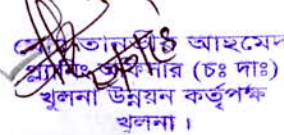 আহমেদ
প্ল্যানিং অফিসার (চঃ দাঃ)
খুলনা উন্নয়ন কর্তৃপক্ষ
খুলনা।